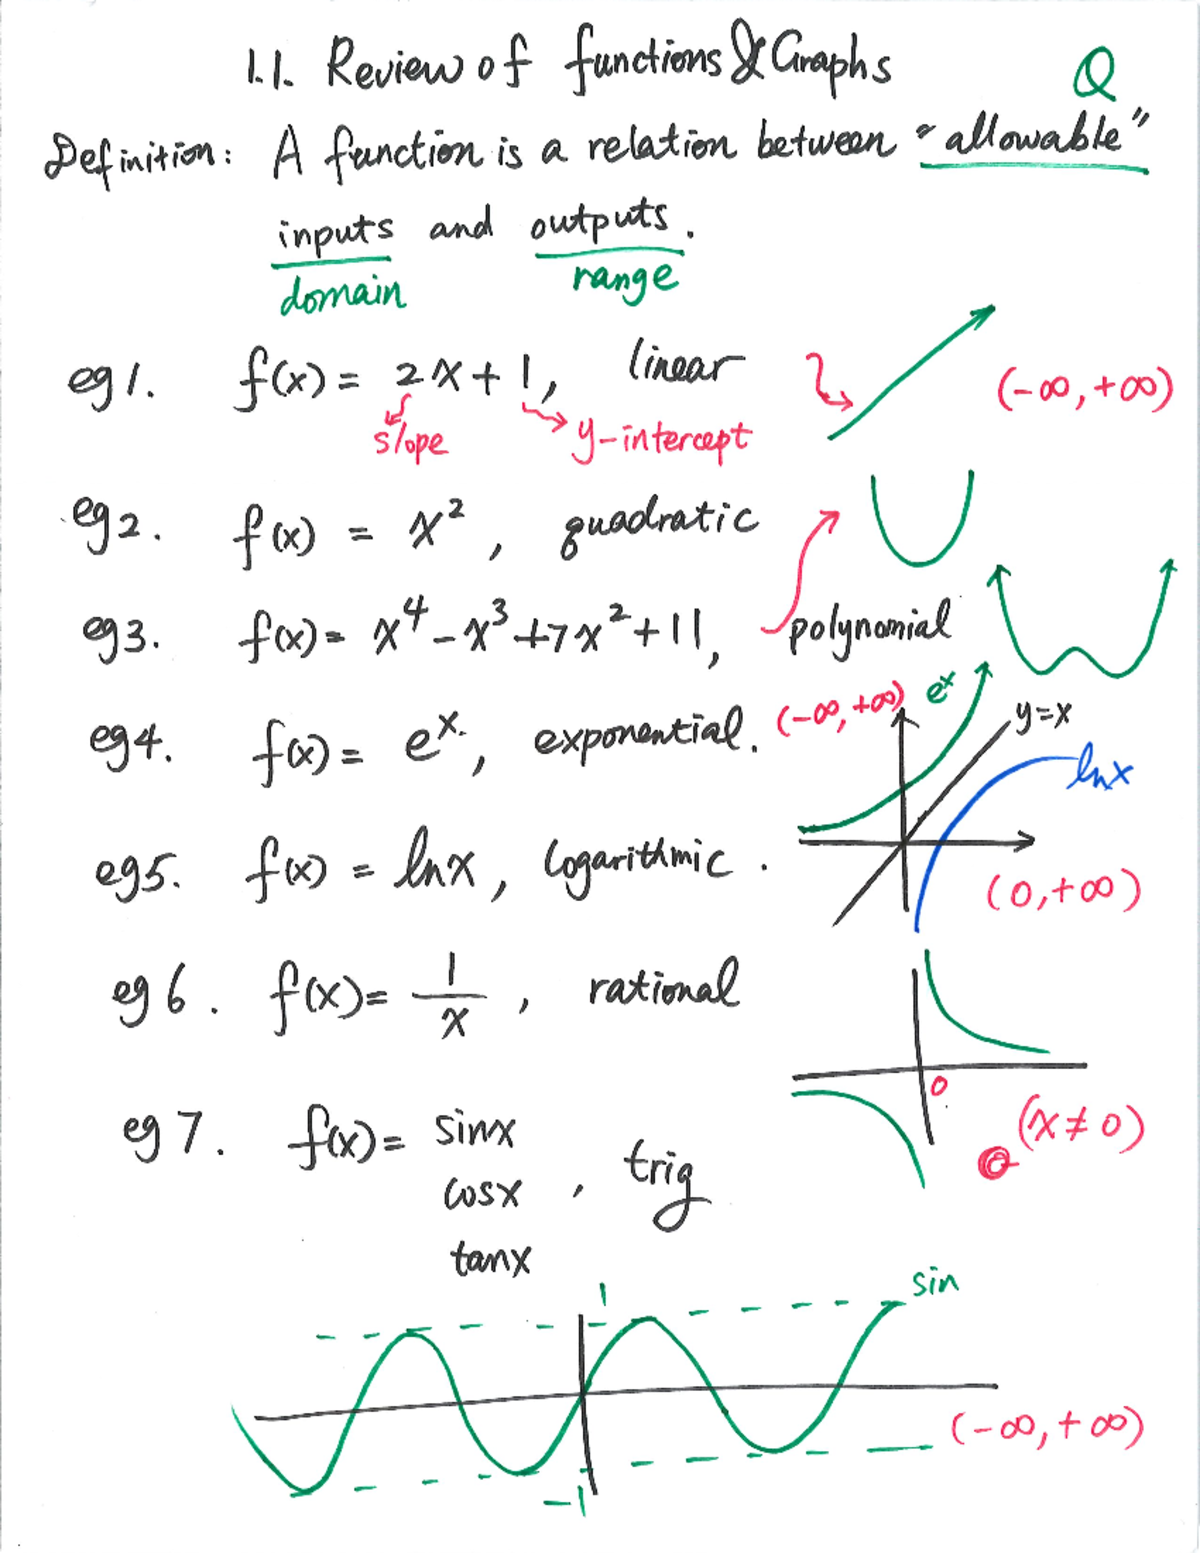 1.1. Review of functions & Graphs
Q
Definition: A function is a relation between "allowable"
inputs and outputs.
domain range
eg1. f(x) = 2x+1, linear (-∞,+∞)
slope y-intercept
eg2. f(x) = x², quadratic
eg3. f(x) = x⁴-x³+7x²+11, polynomial
(-∞,+∞) eˣ
eg4. f(x) = eˣ, exponential. y=x
lnx
eg5. f(x) = lnx, logarithmic. (0,+∞)
eg6. f(x) = 1/x, rational
0
(x≠0)
eg7. f(x) = sinx
cosx, trig
tanx
1 sin
(-∞,+∞)
-1